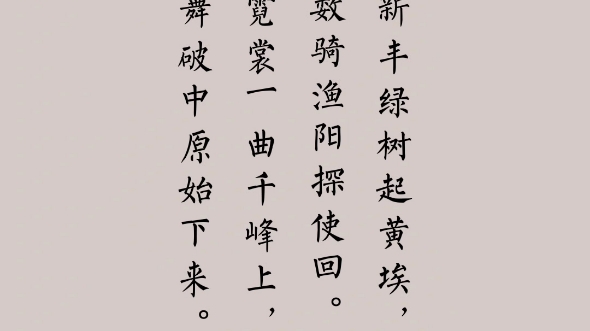 新丰绿树起黄埃，
数骑渔阳探使回。
霓裳一曲千峰上，
舞破中原始下来。